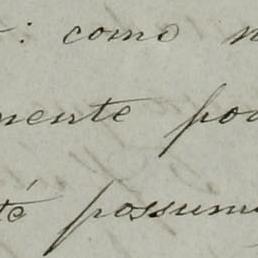 : como
mente
té possum